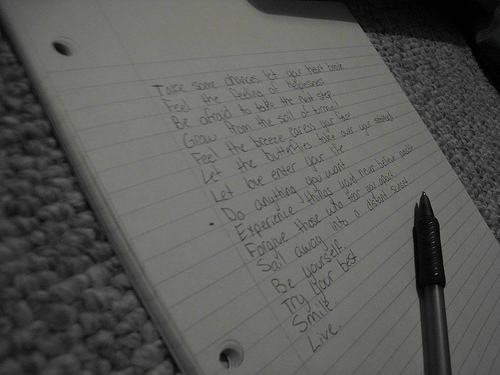 Take some chances, let your heart break
Feel the feeling of helplessness
Be afraid to take the next step.
Grow from the soil of turmoil
Feel the breeze caress your face
Let the butterflies take over your stomach
Let love enter your life
Do anything you want
Experience things you'd never believe possible
Forgive those who tear you apart
Sail away into a distant sunset
Be yourself.
Try your best
Smile.
Live.